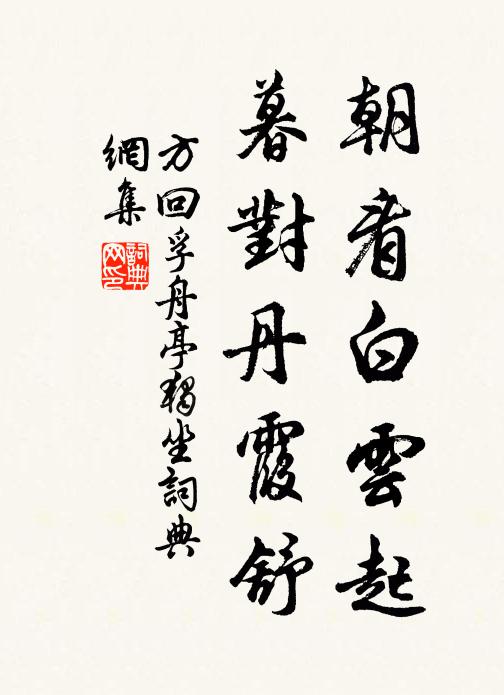 朝看白雲起
暮對丹霞舒
方回孚舟亭獨坐詞典
網集
詞典網印